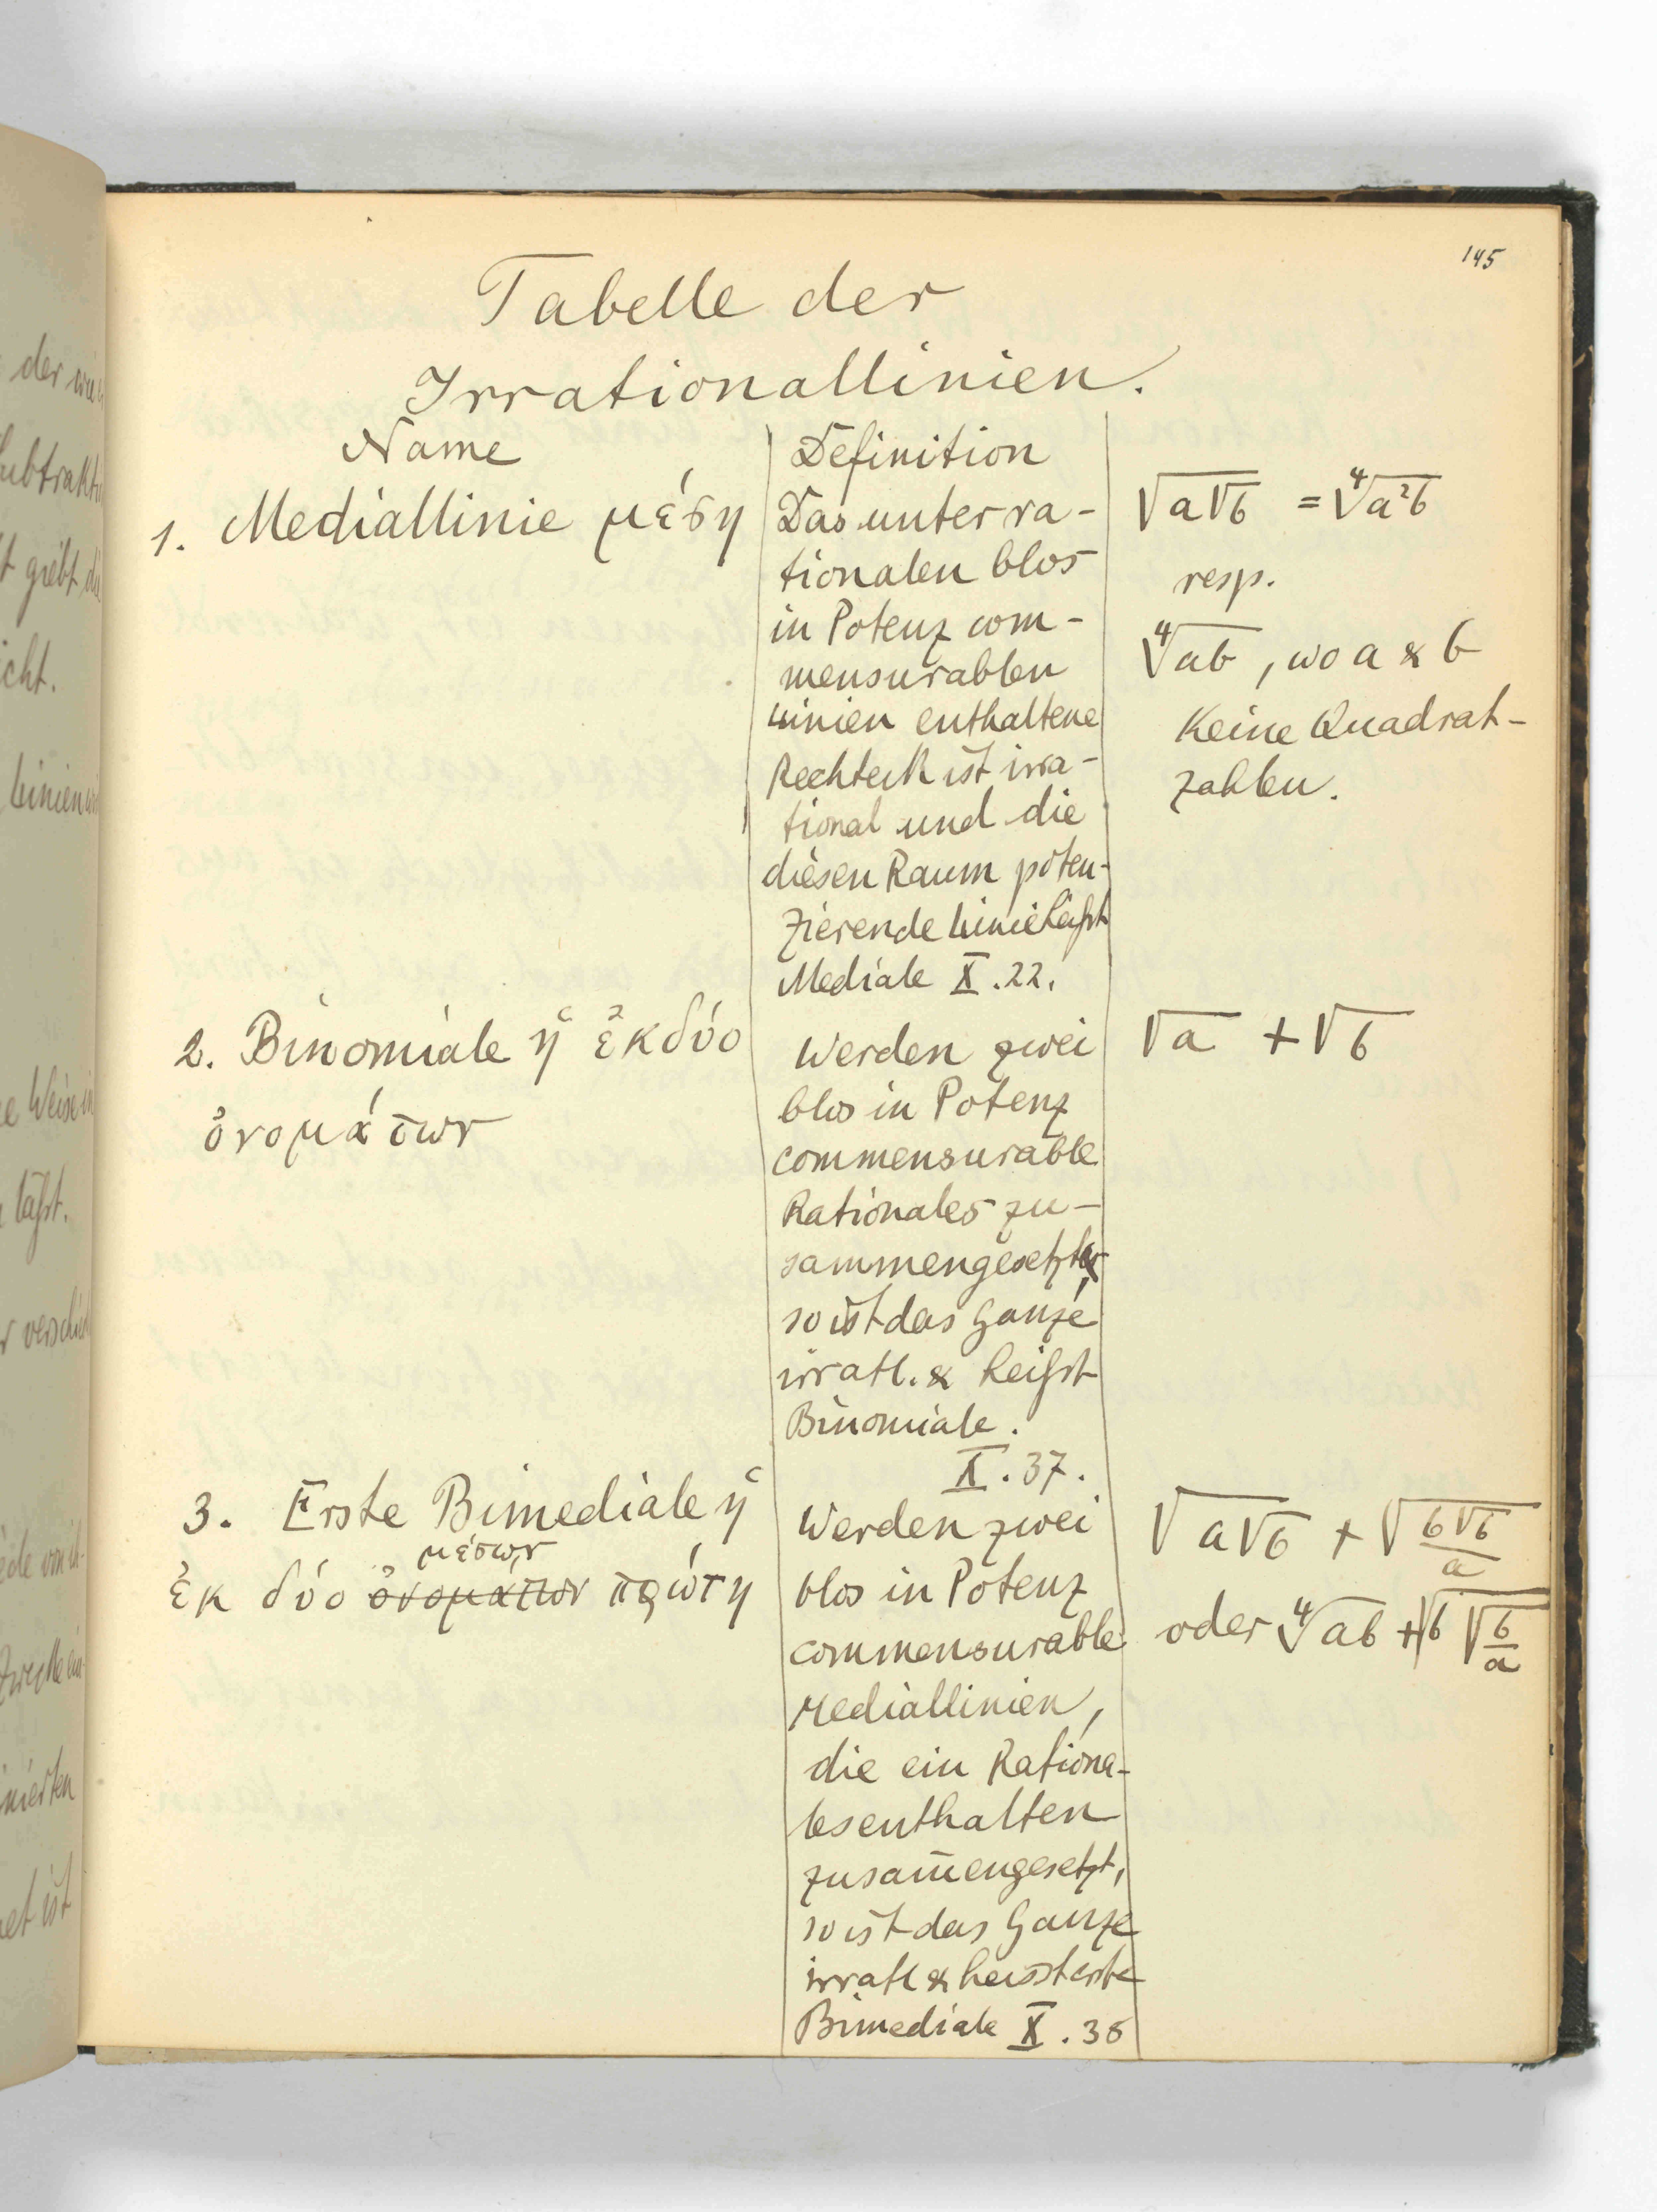 145
Tabelle der
Irrationallinien.
Name
Definition
1. Mediallinie μέση
Das unter ra-
tionalen blos
in Potenz com-
mensurablen
Linien enthaltene
Rechteck ist irra-
tional und die
diesen Raum poten-
zierende Linie heißt
Mediale X.22.
√a√b = ∜a²b
resp.
∜ab, wo a & b
Keine Quadrat-
zahlen.
2. Binomiale ἡ ἐκ δύο
ὀνομάτων
Werden zwei
blos in Potenz
commensurable
Rationales zu-
sammengesetzt
so ist das Ganze
irratl. & heißt
Binomiale.
X.37.
√a + √b
3. Erste Bimediale ἡ
μέσων
ἐκ δύο ὀνομάτων πρώτη
Werden zwei
blos in Potenz
commensurable
Mediallinien,
die ein Rationa-
les enthalten
zusam̄engesetzt,
so ist das Ganze
irratl & heisst erste
Bimediale X.38
√a√b + √b√b/a
oder ∜ab + √b√b/a
der
Subtrakti
t giebt di
icht.
Linien
e Weise in
läßt.
r verschied
ede von
Zwecke ein-
nierten
et ist